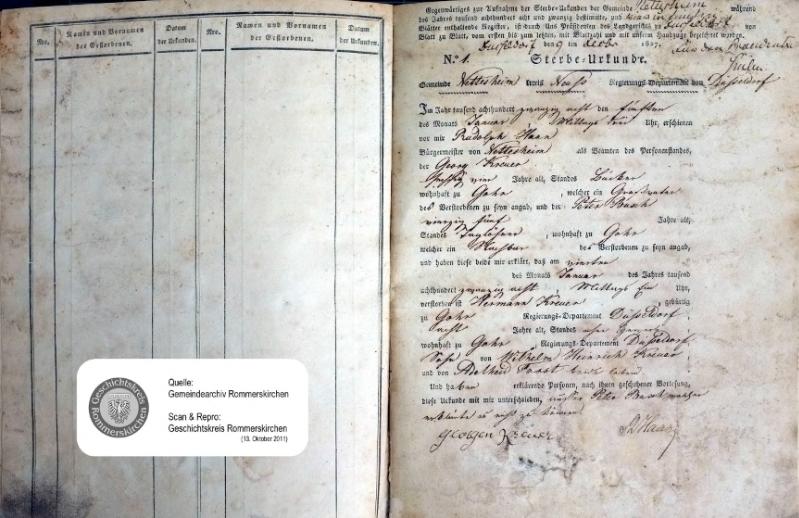 Nro.
Namen und Vornamen
des Gestorbenen.
Datum
der Urkunden.
Nro.
Namen und Vornamen
der Gestorbenen.
Datum
der Urkunden.
Quelle:
Gemeindearchiv Rommerskirchen
Scan & Repro:
Geschichtskreis Rommerskirchen
(13. Oktober 2011)
Geschichtskreis
Rommerskirchen
Gegenwärtiges zur Aufnahme der Sterbe-Urkunden der Gemeinde Nettesheim während
des Jahres tausend achthundert acht und zwanzig bestimmte, und
Blätter enthaltende Register, ist durch Uns Präsidenten des Landgerichts zu Düsseldorf von
Blatt zu Blatt, vom ersten bis zum letzten, mit Blattzahl und mit unserm Handzuge bezeichnet worden.
Düsseldorf den 9 1827.
N.° 1. Sterbe-Urkunde.
Gemeinde Nettesheim Kreis Neuß Regierungs-Departement von Düsseldorf
Im Jahr tausend achthundert zwanzig acht den fünften
des Monats Januar, Mittags Uhr, erschienen
vor mir Rudolph Haan
Bürgermeister von Nettesheim als Beamten des Personenstandes,
der Georg Kreuer
vier Jahre alt, Standes Bäcker
wohnhaft zu Gohr, welcher ein Großvater
des Verstorbenen zu seyn angab, und der Peter
vierzig fünf Jahre alt,
Standes Taglöhner, wohnhaft zu Gohr
welcher ein Nachbar des Verstorbenen zu seyn angab,
und haben diese beide mir erklärt, daß am vierten
des Monats Januar des Jahres tausend
achthundert zwanzig acht, Mittags Uhr,
verstorben ist Hermann Kreuer, gebürtig
zu Gohr Regierungs-Departement Düsseldorf,
acht Jahre alt, Standes ohne
wohnhaft zu Gohr Regierungs-Departement Düsseldorf
Sohn von Wilhelm Heinrich Kreuer
und von Adelheid
Und haben erklärende Personen, nach ihnen geschehener Vorlesung,
diese Urkunde mit mir unterschrieben, Peter welcher
erklärte nicht zu können
Georgen Kreuer
R Haan